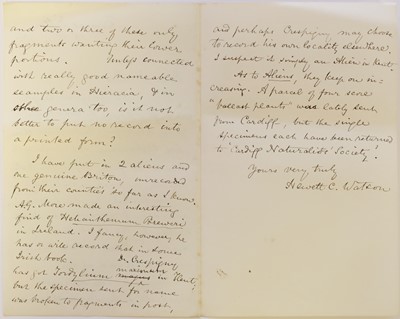 and two or three of these only
fragments wanting their lower
portions. Unless connected
with really good nameable
examples in Hieracia, & in
other genera too, is it not
better to put no record into
a printed form?
I have put in 2 aliens and
one genuine Briton, unrecorded
from their counties so far as I know.
A.G. More made an interesting
find of Helianthemum Breweri
in Ireland. I fancy, however, he
has or will record that in some
Irish book. Dr. Crespigny
has got Tordylium maximum in Kent,
but the specimen sent for name
was broken to fragments in post,
and perhaps Crespigny may choose
to record his own locality elsewhere.
I suspect it simply an Alien in Kent.
As to Aliens, they keep on in-
creasing. A parcel of four score
"ballast plants" was lately sent
from Cardiff, but the single
specimens each have been returned
to "Cardiff Naturalists' Society".
Yours very truly
Hewett C. Watson